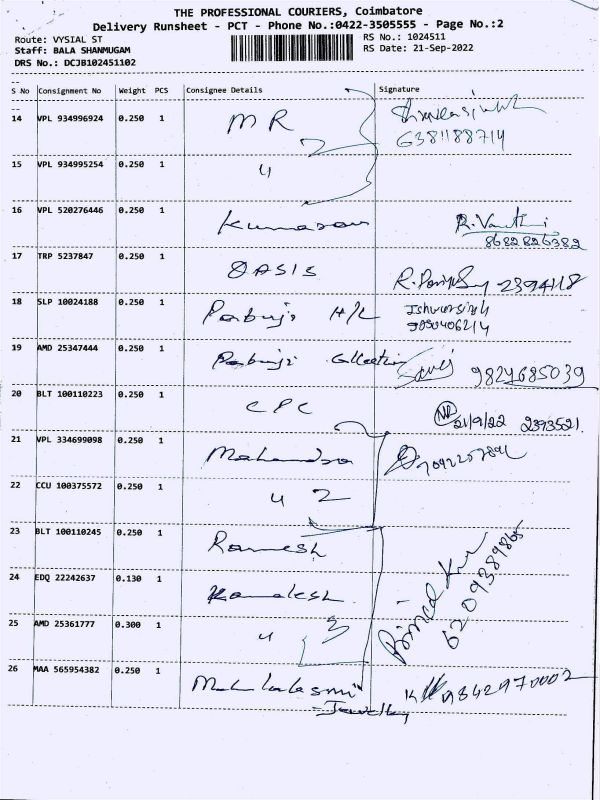 THE PROFESSIONAL COURIERS, Coimbatore
Delivery Runsheet - PCT - Phone No.:0422-3505555 - Page No.:2
Route: VYSIAL ST
RS No.: 1024511
Staff: BALA SHANMUGAM
RS Date: 21-Sep-2022
DRS No.: DCJB102451102
S No Consignment No Weight PCS Consignee Details Signature
14 VPL 934996924 0.250 1 MR 2
6381188714
15 VPL 934995254 0.250 1 4
16 VPL 520276446 0.250 1 Kumaran R. Vanthi
8682826382
17 TRP 5237847 0.250 1 OASIS R. 2394118
18 SLP 10024188 0.250 1 Pabuji H/L Ishwarsingh
19 AMD 25347444 0.250 1 Pabuji Collection 9824685039
20 BLT 100110223 0.250 1 CPC 21/9/22 2393521
21 VPL 334699098 0.250 1 Mahendra
22 CCU 100375572 0.250 1 4 2
23 BLT 100110245 0.250 1 Ramesh
24 EDQ 22242637 0.130 1 Kamalesh
25 AMD 25361777 0.300 1 4 3
6209389865
26 MAA 565954382 0.250 1 Mahalakshmi 9842970002
Jewellery